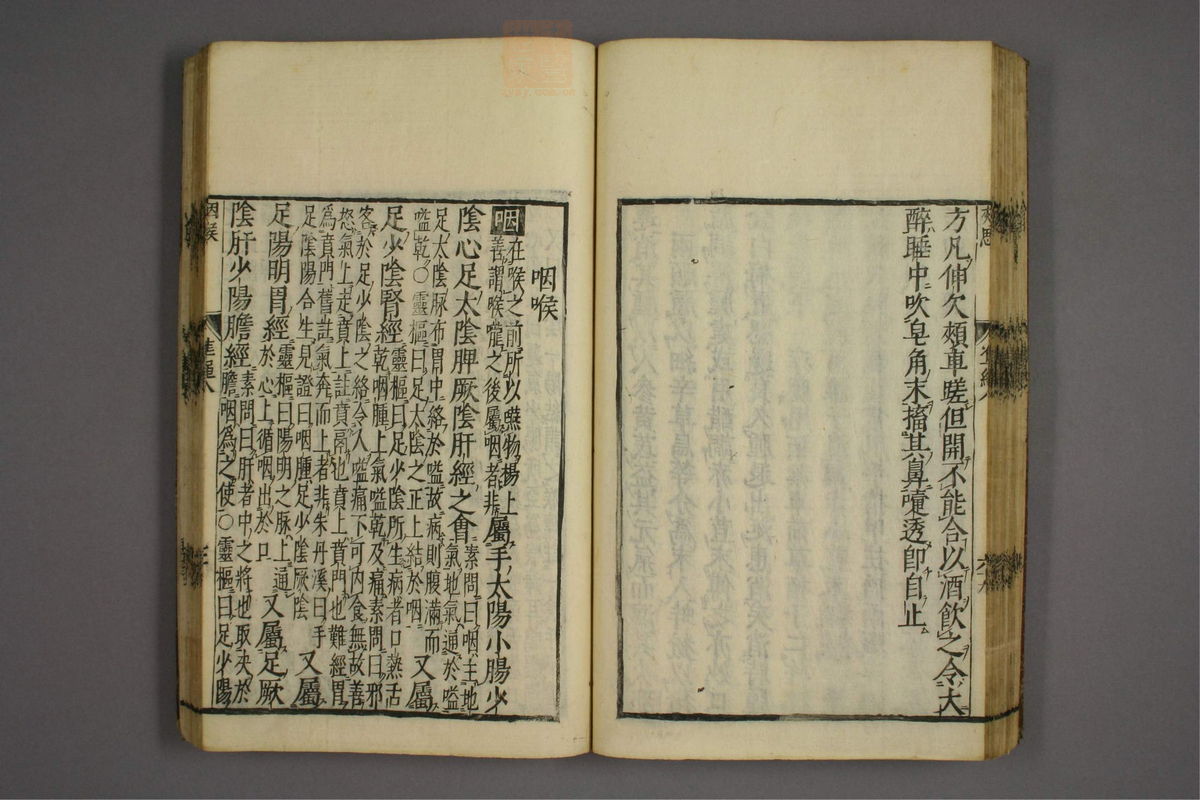 方凡伸欠頰車蹉但開不能合以酒飲之令大
醉睡中吹皂角末搐其鼻嚏透卽自止
咽喉
咽
在喉之前所以嚥物楊上
善謂喉嚨之後屬咽者非
屬手太陽小腸少
陰心足太陰脾厥陰肝經之會
素問曰咽主地
氣地氣通於嗌
足太陰脉布胃中絡於嗌故病則腹滿而
嗌乾○靈樞曰足太陰之正上結於咽
又屬
足少陰腎經
靈樞曰足少陰所生病者口熱舌
乾咽腫上氣嗌乾及痛素問曰邪
客於足少陰之絡令人嗌痛不可内食無故善
怒氣上走賁上註賁鬲也賁上賁門也難經胃
爲賁門舊註氣奔而上者非朱丹溪曰手
足陰陽合生見證曰咽腫足少陰厥陰
又屬
足陽明胃經
靈樞曰陽明之脉上通
於心上循咽出於口
又屬足厥
陰肝少陽膽經
素問曰肝者中之將也取决於
膽咽爲之使○靈樞曰足少陽
咽喉